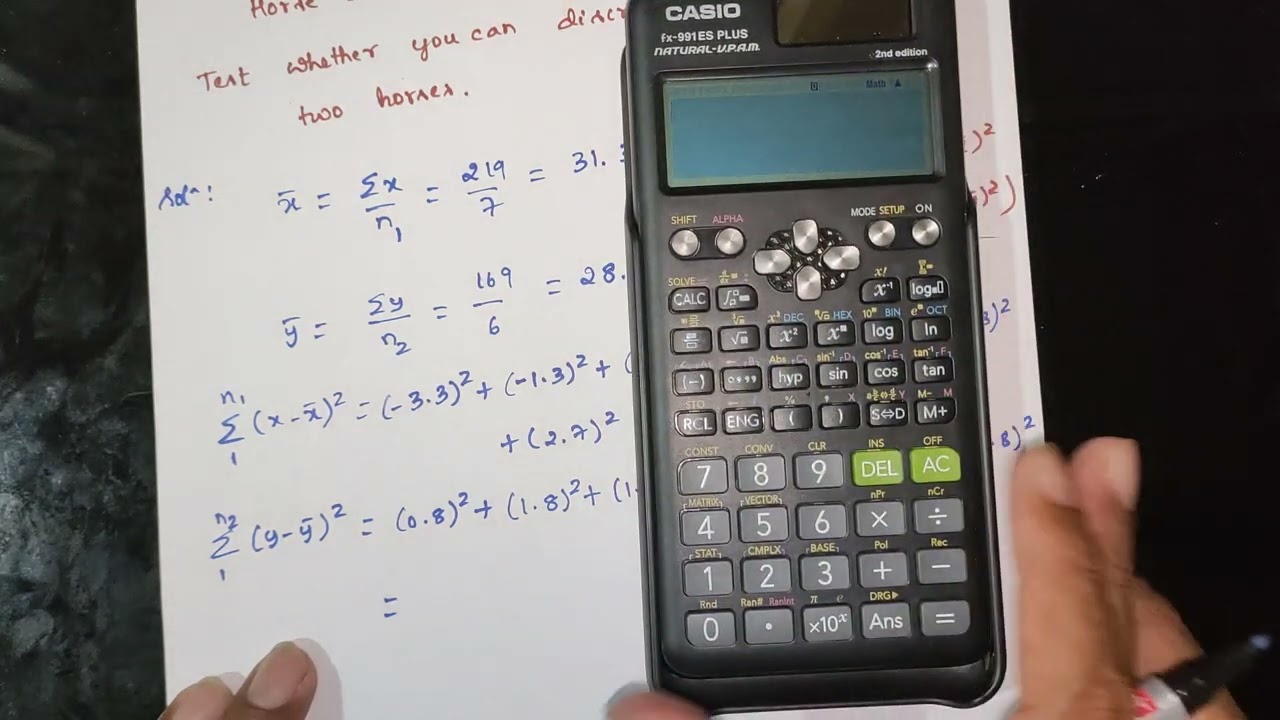 Horse
Test whether you can discr
two horses.
Solⁿ: x̄ = Σx/n₁ = 219/7 = 31.3
ȳ = Σy/n₂ = 169/6 = 28.
n₁ Σ 1 (x-x̄)² = (-3.3)² + (-1.3)² + (
+ (2.7)²
n₂ Σ 1 (y-ȳ)² = (0.8)² + (1.8)² + (1.
=
)²
)²)
3)²
.8)²
CASIO
fx-991ES PLUS
NATURAL-V.P.A.M.
2nd edition
D Math ▲
SHIFT ALPHA MODE SETUP ON
SOLVE = d/dx x! Σ
CALC ∫ x⁻¹ log
x³ DEC HEX 10ˣ BIN eˣ OCT
√ x² x log ln
Abs C sin⁻¹ D cos⁻¹ E tan⁻¹ F
(−) hyp sin cos tan
STO % X Y M− M
RCL ENG ( ) S⇔D M+
CONST CONV CLR INS OFF
7 8 9 DEL AC
MATRIX VECTOR nPr nCr
4 5 6 × ÷
STAT CMPLX BASE Pol Rec
1 2 3 + −
Rnd Ran# RanInt π e DRG▶
0 . ×10ˣ Ans =